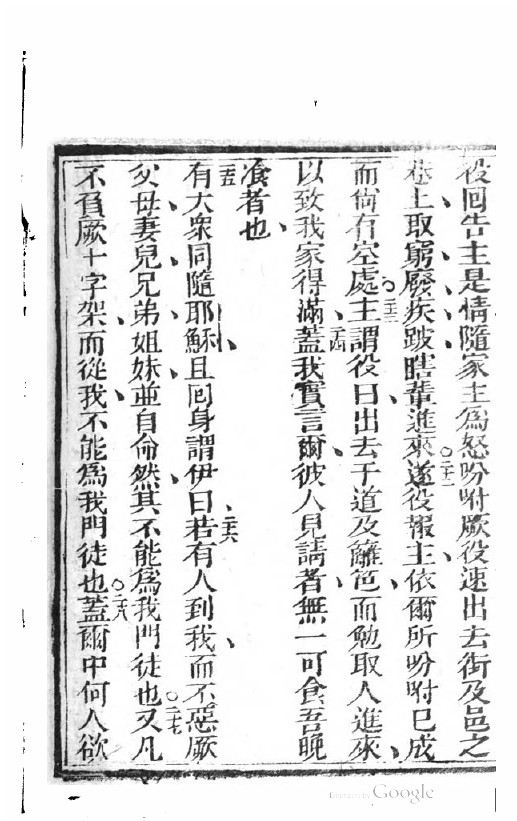 役回告主是情隨家主爲怒吩咐厥役速出去街及邑之
巷上取窮廢疾跛瞎輩進來〇二十二遂役報主依爾所吩咐已成
而尙有空處〇二十三主謂役曰出去于道及籬笆而勉取人進來
以致我家得滿二十四蓋我實言爾彼人見請者無一可食吾晚
飡者也
二十五有大衆同隨耶穌且回身謂伊曰二十六若有人到我而不惡厥
父母妻兒兄弟姐妹並自命然其不能爲我門徒也〇二十七又凡
不負厥十字架而從我不能爲我門徒也〇二十八蓋爾中何人欲
Digitized by Google